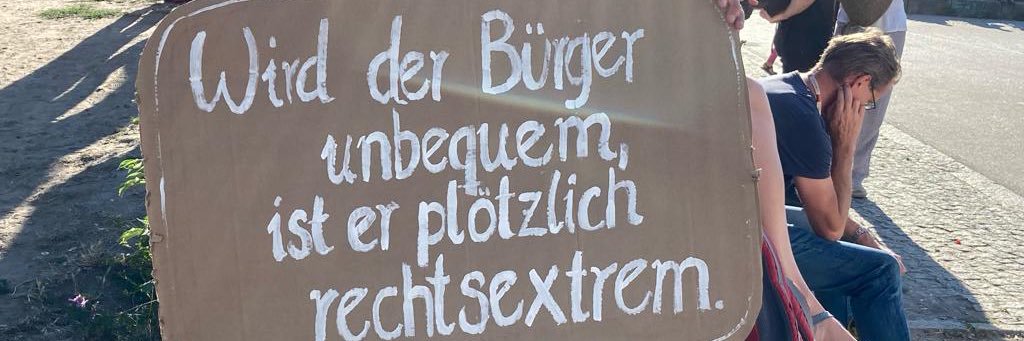 Wird der Bürger
unbequem,
ist er plötzlich
rechtsextrem.